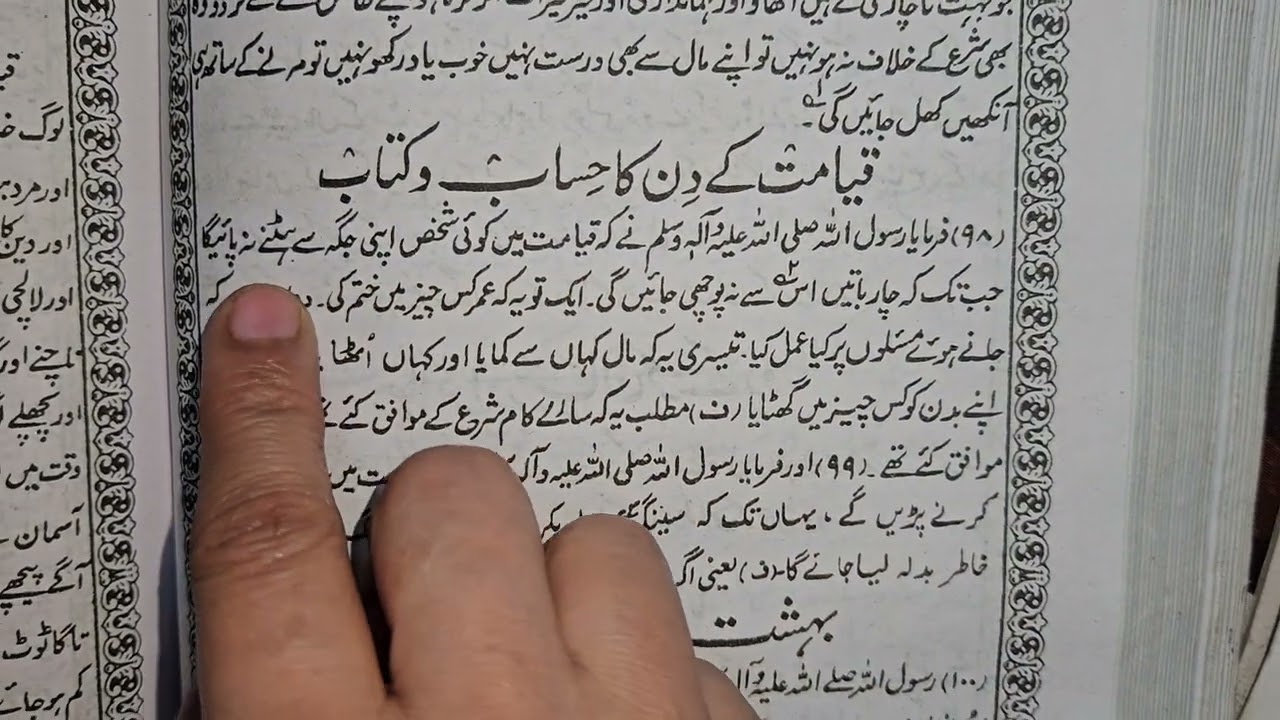 بھی شرع کے خلاف نہ ہو نہیں تو اپنے مال سے بھی درست نہیں خوب یاد رکھو نہیں تو مرنے کے ساتھ ہی
آنکھیں کھل جائیں گی۔
قیامت کے دِن کا حِساب و کتاب
(۹۸) فرمایا رسول اللہ صلی اللہ علیہ وآلہ وسلم نے کہ قیامت میں کوئی شخص اپنی جگہ سے ہٹنے نہ پائیگا
جب تک کہ چار باتیں اس سے نہ پوچھی جائیں گی۔ ایک تو یہ کہ عمر کس چیز میں ختم کی۔ کہ
جانے ہوئے مسئلوں پر کیا عمل کیا۔ تیسری یہ کہ مال کہاں سے کمایا اور کہاں اُٹھایا
اپنے بدن کو کس چیز میں گھٹایا (ف) مطلب یہ کہ سارے کام شرع کے موافق کئے تھے
موافق کئے تھے۔ (۹۹) اور فرمایا رسول اللہ صلی اللہ علیہ وآلہ میں
کرنے پڑیں گے، یہاں تک کہ سینگ
خاطر بدلہ لیا جائے گا۔ (ف) یعنی اگر
بہشت
(۱۰۰) رسول اللہ صلے اللہ علیہ وآلہ
لوگ
اور مرد
اور دین کا
اور لالچی
ناچنے اور
اور پچھلے
وقت میں
آسمان
آگے پیچھے
تاگا ٹوٹ
کم ہو جائے